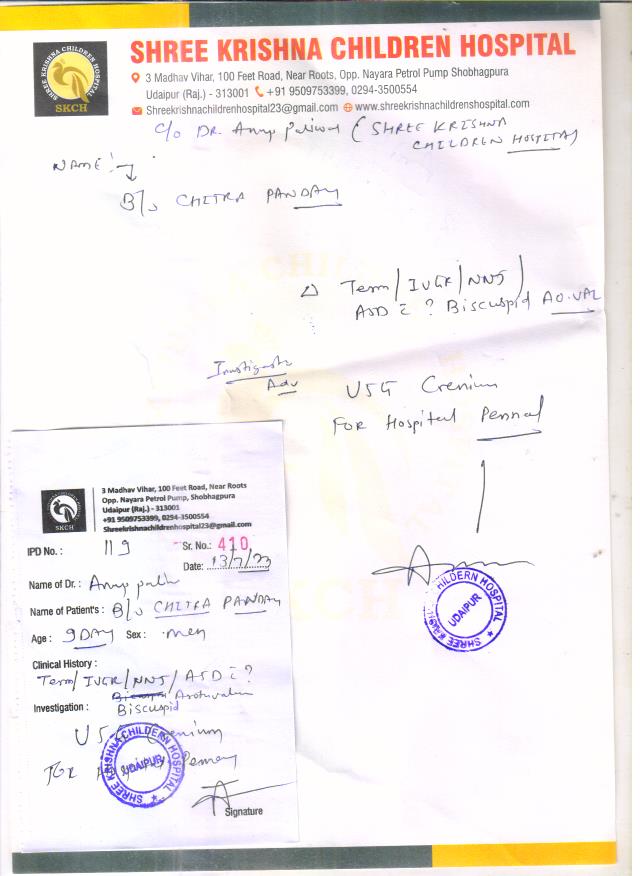 SHREE KRISHNA CHILDREN HOSPITAL
SHREE KRISHNA CHILDREN HOSPITAL
SKCH
3 Madhav Vihar, 100 Feet Road, Near Roots, Opp. Nayara Petrol Pump Shobhagpura
Udaipur (Raj.) - 313001 +91 9509753399, 0294-3500554
Shreekrishnachildrenhospital23@gmail.com www.shreekrishnachildrenshospital.com
C/o DR. Anup (SHREE KRISHNA
CHILDREN HOSPITAL)
NAME :-
B/o CHITRA PANDAY
Δ Term/IUGR/NNJ/
ASD c ? Biscuspid AO.VAL
Adv
USG Crenium
FOR Hospital
SHREE KRISHNA CHILDERN HOSPITAL
UDAIPUR
3 Madhav Vihar, 100 Feet Road, Near Roots
Opp. Nayara Petrol Pump, Shobhagpura
Udaipur (Raj.) - 313001
+91 9509753399, 0294-3500554
Shreekrishnachildrenhospital23@gmail.com
SKCH
IPD No. : 119 Sr. No.: 410
Date: 13/7/23
Name of Dr. : Anup
Name of Patient's : B/o CHITRA PANDAY
Age : 9 DAY Sex : Men
Clinical History :
Term/IUGR/NNJ/ASD c ?
Investigation : Biscuspid
USG Crenium
FOR
SHREE KRISHNA CHILDERN HOSPITAL
UDAIPUR
Signature